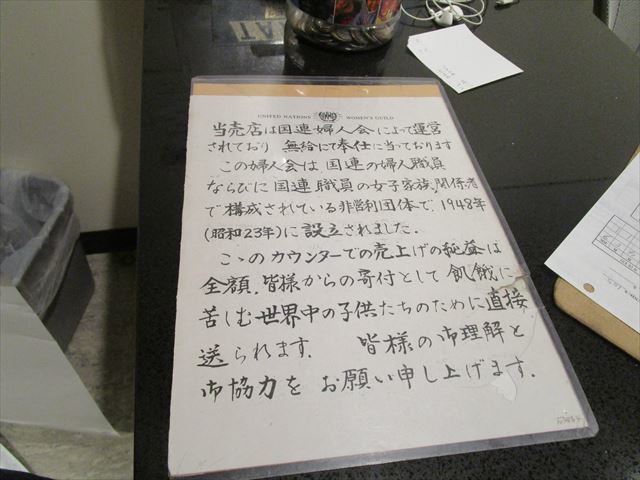 UNITED NATIONS WOMEN'S GUILD
当売店は国連婦人会によって運営
されており 無給にて奉仕に当っております
この婦人会は国連の婦人職員
ならびに国連職員の女子家族、関係者
で構成されている非営利団体で、1948年
(昭和23年)に設立されました.
こゝのカウンターでの売上げの純益は
全額、皆様からの寄付として飢餓に
苦しむ世界中の子供たちのために直接、
送られます. 皆様の御理解と
御協力をお願い申し上げます.